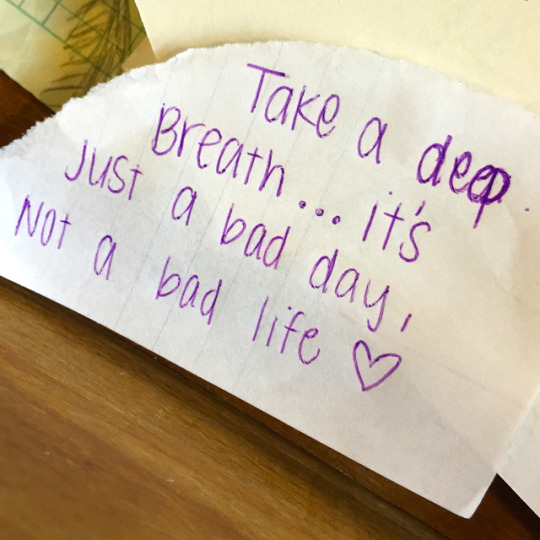 Take a deep
Breath... it's
Just a bad day,
Not a bad life ♡